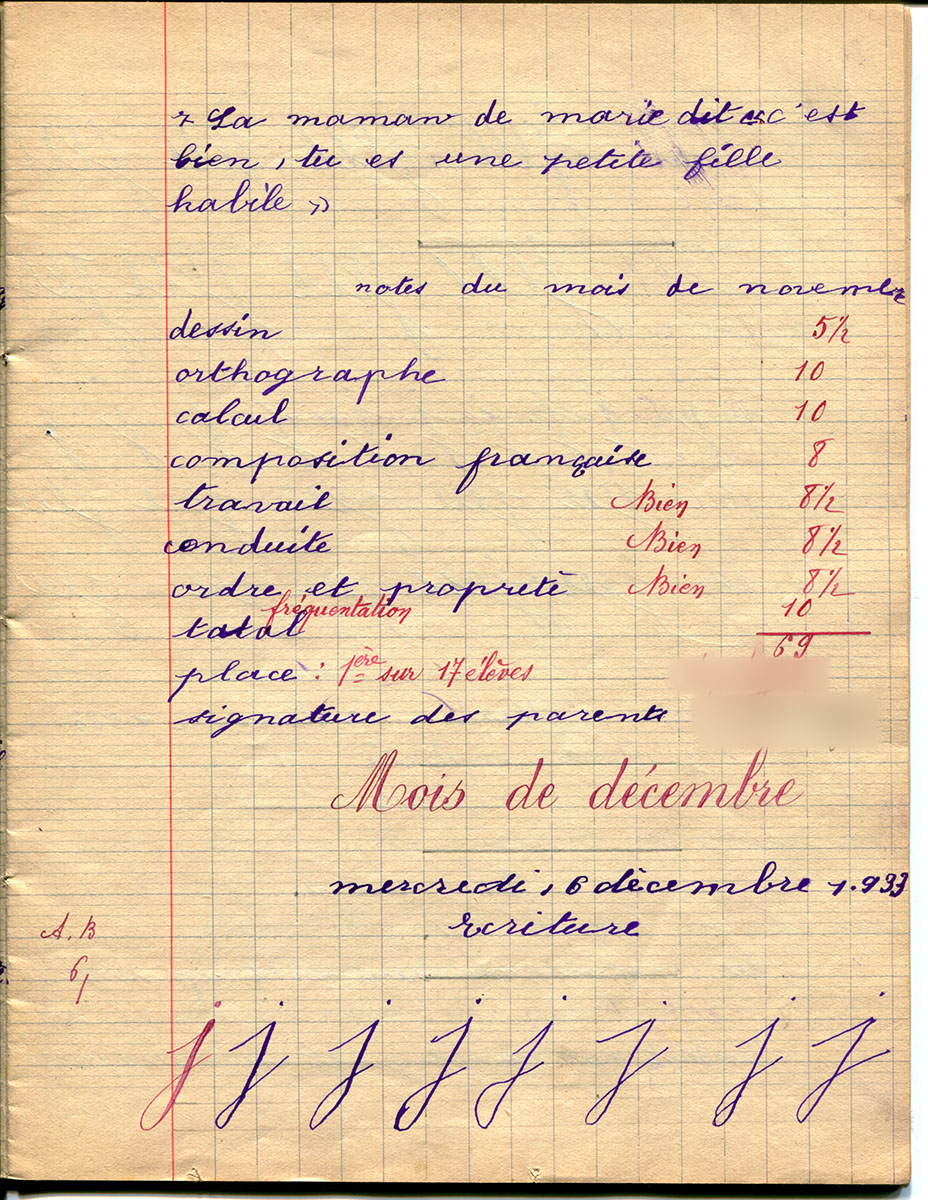 7 La maman de marie dit « c'est
bien, tu es une petite fille
habile »
notes du mois de novembr
dessin 5½
orthographe 10
calcul 10
composition française 8
travail Bien 8½
conduite Bien 8½
ordre et propreté Bien 8½
fréquentation 10
total 69
place : 1ère sur 17 élèves
signature des parents
Mois de décembre
mercredi, 6 décembre 1.933
Ecriture
A. B
6/
j j j j j j j j